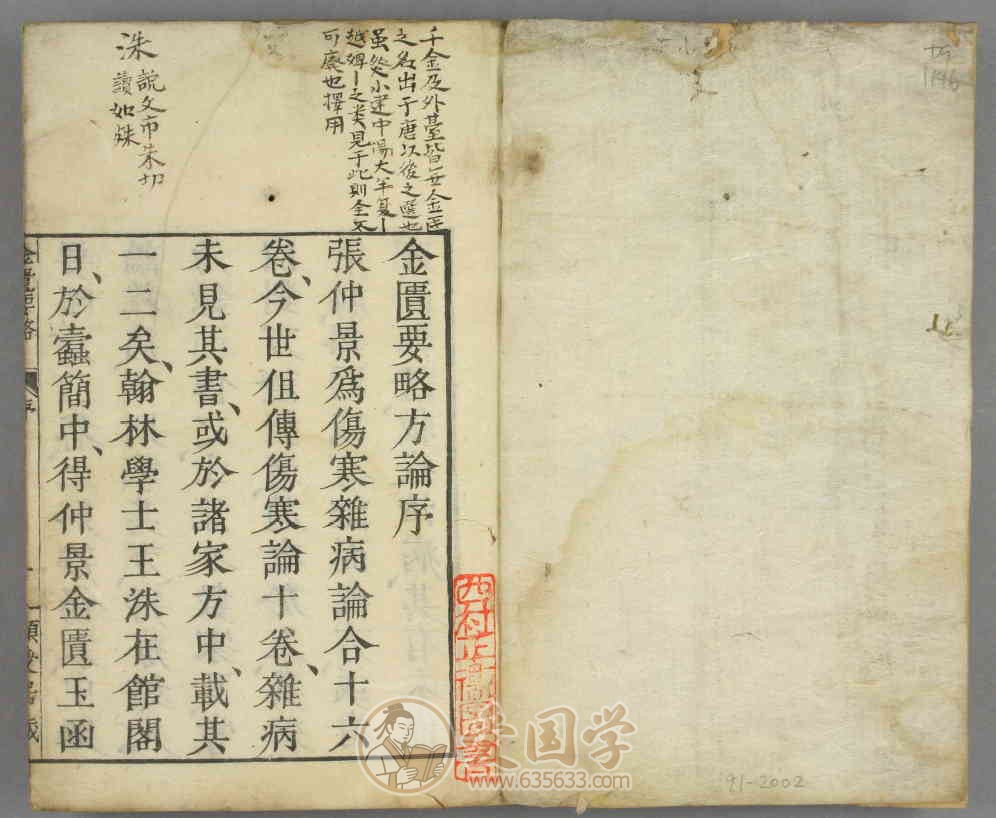 千金及外臺皆無金匱
之名出于唐以後之
虽然小建中湯大半夏
越婢之类見于此則全不
可廢也擇用
洙
說文市朱切
讀如殊
金匱要略方論序
張仲景爲傷寒雜病論合十六
卷、今世但傳傷寒論十卷、雜病
未見其書、或於諸家方中、載其
一二矣、翰林學士王洙在館閣
日、於蠹簡中、得仲景金匱玉函
金匱要略
序
一
91-2002
爱国学
www.635633.com